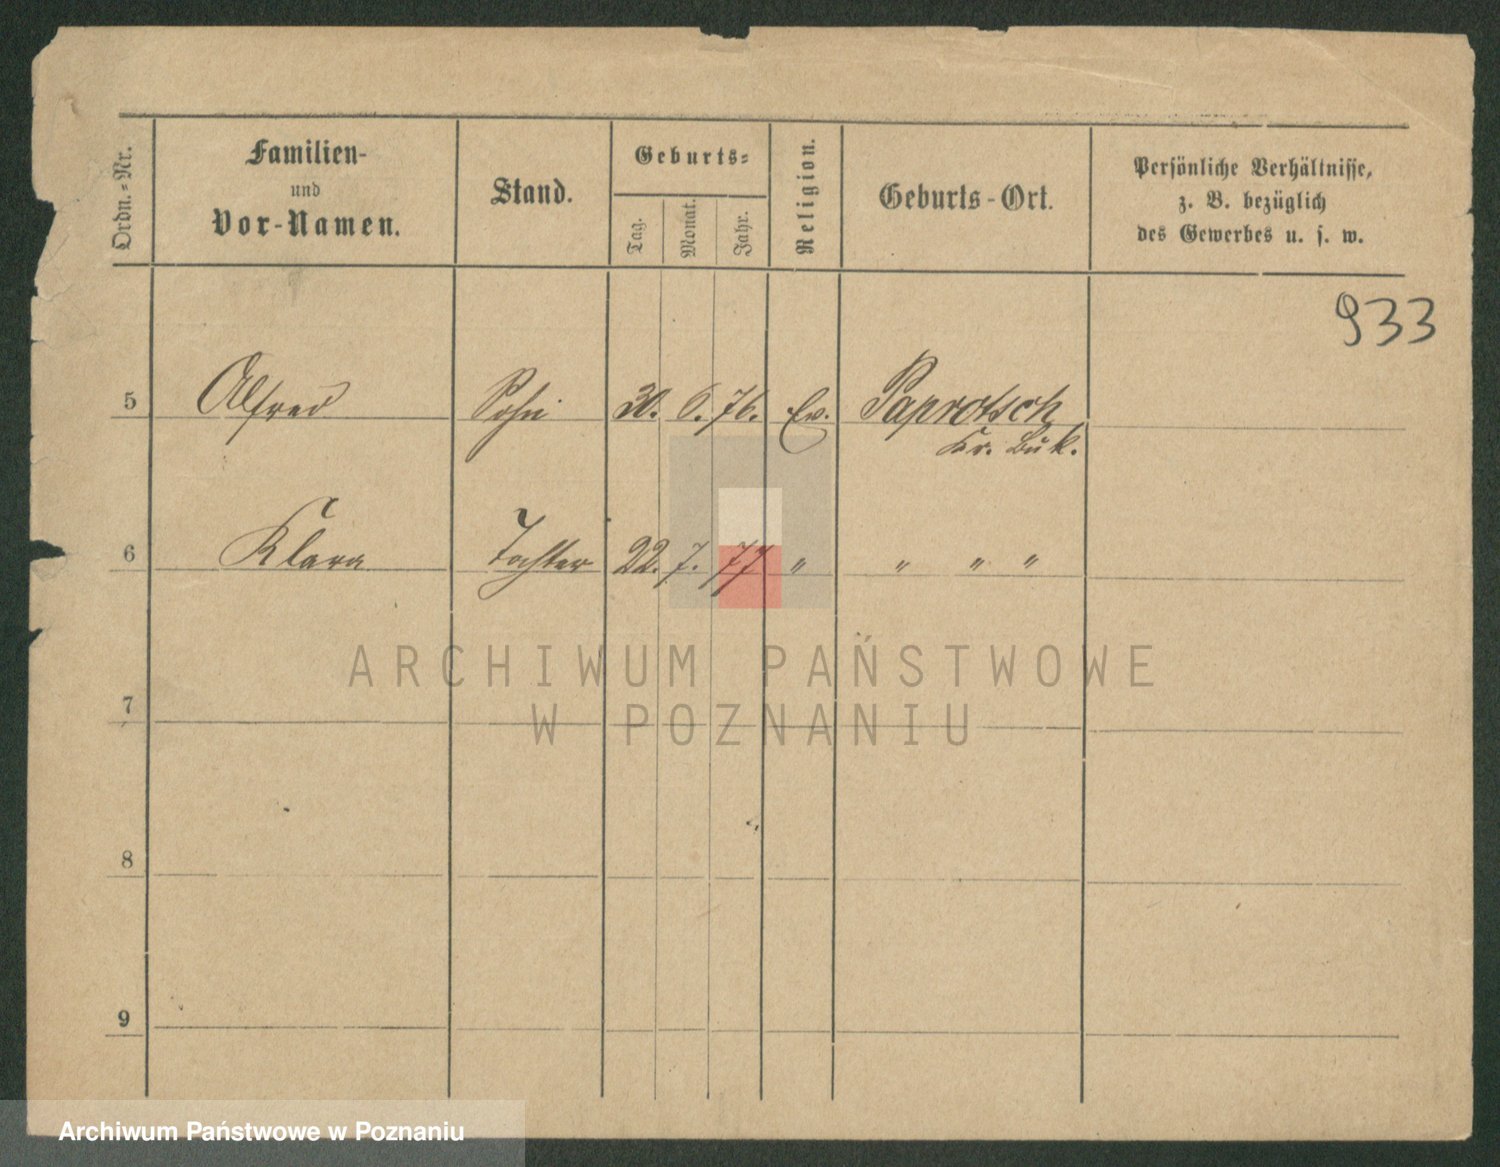 Ordn.-Nr.
Familien-
und
Vor-Namen.
Stand.
Geburts-
Tag.
Monat.
Jahr.
Religion.
Geburts-Ort.
Persönliche Verhältnisse,
z. B. bezüglich
des Gewerbes u. s. w.
933
5 Alfred Sohn 30. 6. 76. Ev. Paprotsch
Kr. Buk.
6 Klara Tochter 22. 7. 77 " " " "
7
8
9
ARCHIWUM PAŃSTWOWE
W POZNANIU
Archiwum Państwowe w Poznaniu